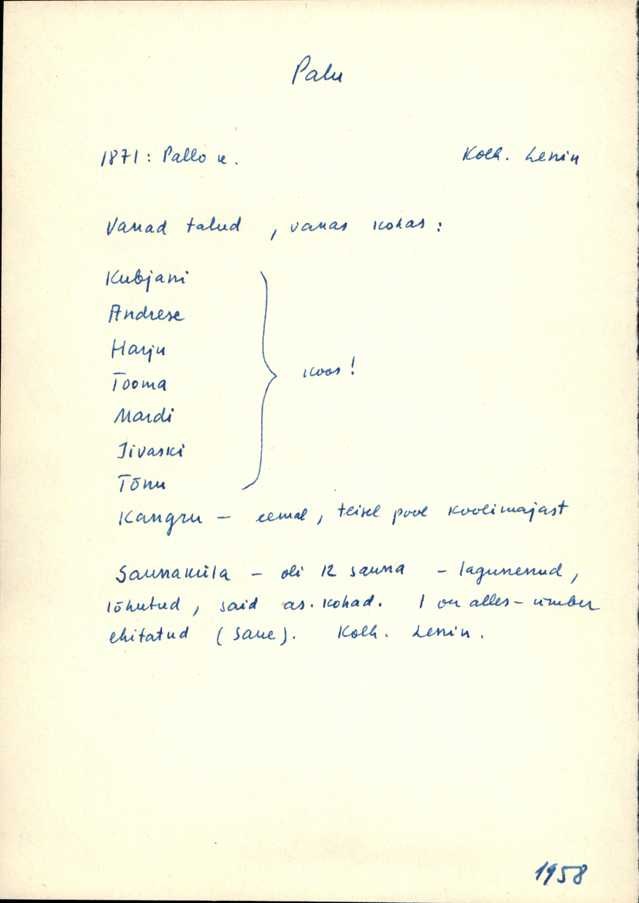 Palu
1871: Pallo k. Kolh. Lenin
Vanad talud, vanas kohas:
Kubjani
Andrese
Harju
Tooma
koos!
Mardi
Jivaski
Tõnu
Kangru – eemal, teisel pool koolimajast
Saunaküla – oli 12 sauna – lagunenud,
lõhutud, said as. kohad. 1 on alles – ümber
ehitatud (Saue). Kolh. Lenin.
1958